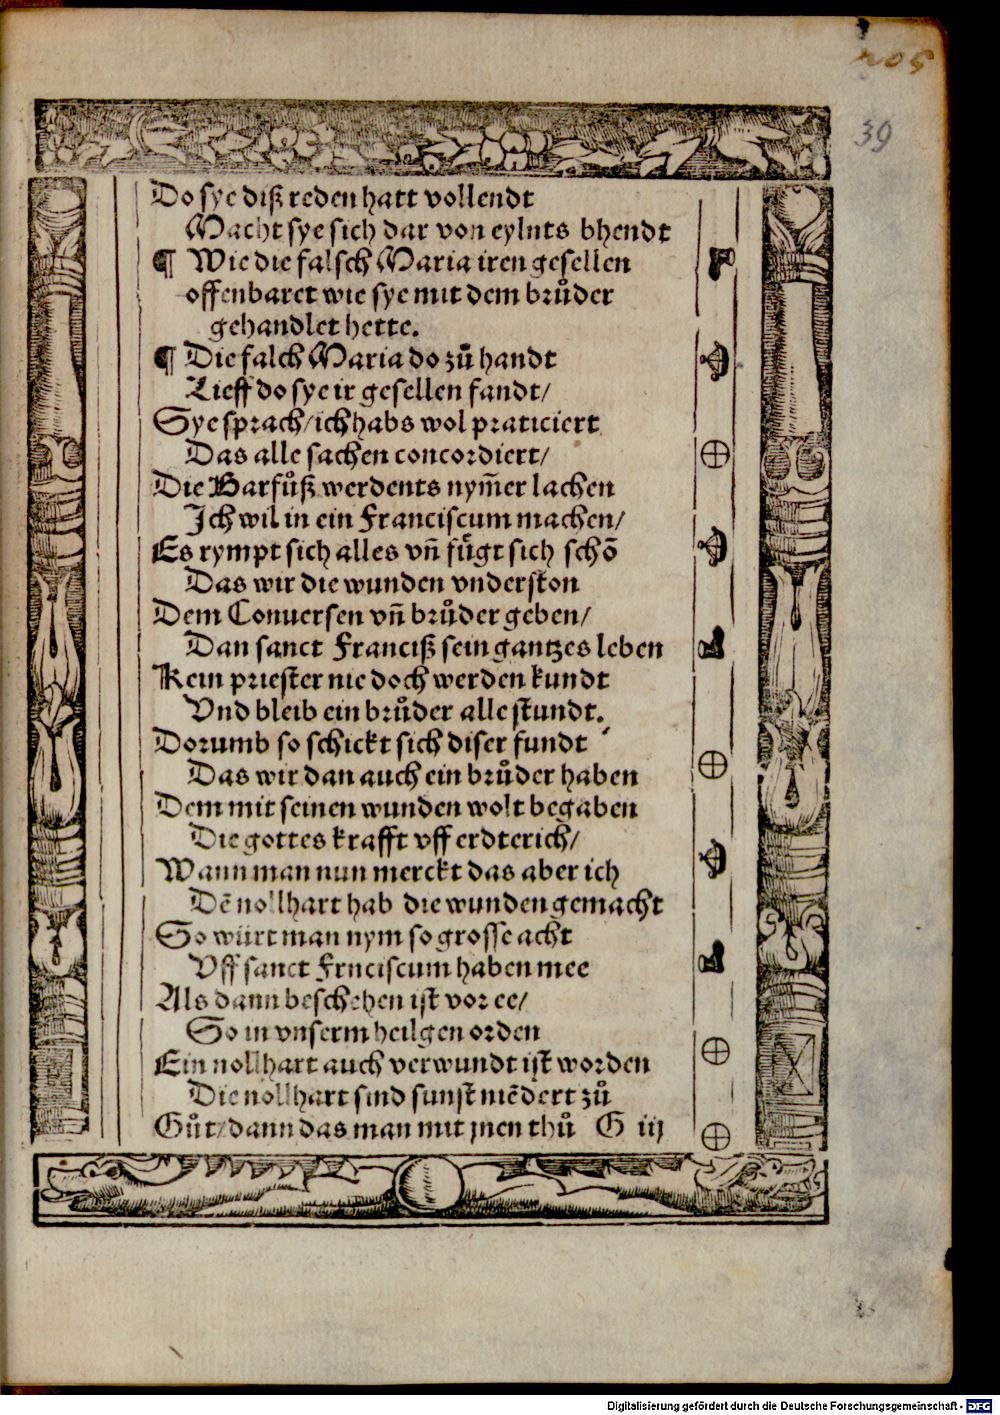 205
39
Do sye diß reden hatt vollendt
Macht sye sich dar von eylnts bhendt
¶ Wie die falsch Maria iren gesellen
offenbaret wie sye mit dem brůder
gehandlet hette.
¶ Die falsch Maria do zů handt
Lieff do sye ir gesellen fandt/
Sye sprach/ich habs wol praticiert
Das alle sachen concordiert/
Die Barfůß werdents nym̄er lachen
Ich wil in ein Franciscum machen/
Es rympt sich alles vñ fůgt sich schō
Das wir die wunden vnderston
Dem Conuersen vñ brůder geben/
Dan sanct Franciß sein gantzes leben
Kein priester nie doch werden kundt
Vnd bleib ein brůder alle stundt.
Dorumb so schickt sich diser fundt
Das wir dan auch ein brůder haben
Dem mit seinen wunden wolt begaben
Die gottes krafft vff erdterich/
Wann man nun merckt das aber ich
Dē nollhart hab die wunden gemacht
So würt man nym so grosse acht
Vff sanct Frnciscum haben mee
Als dann beschehen ist vor ee/
So in vnserm heilgen orden
Ein nollhart auch verwundt ist worden
Die nollhart sind sunst niēdert zů
Gůt/dann das man mit jnen thů G iij
Digitalisierung gefördert durch die Deutsche Forschungsgemeinschaft - DFG